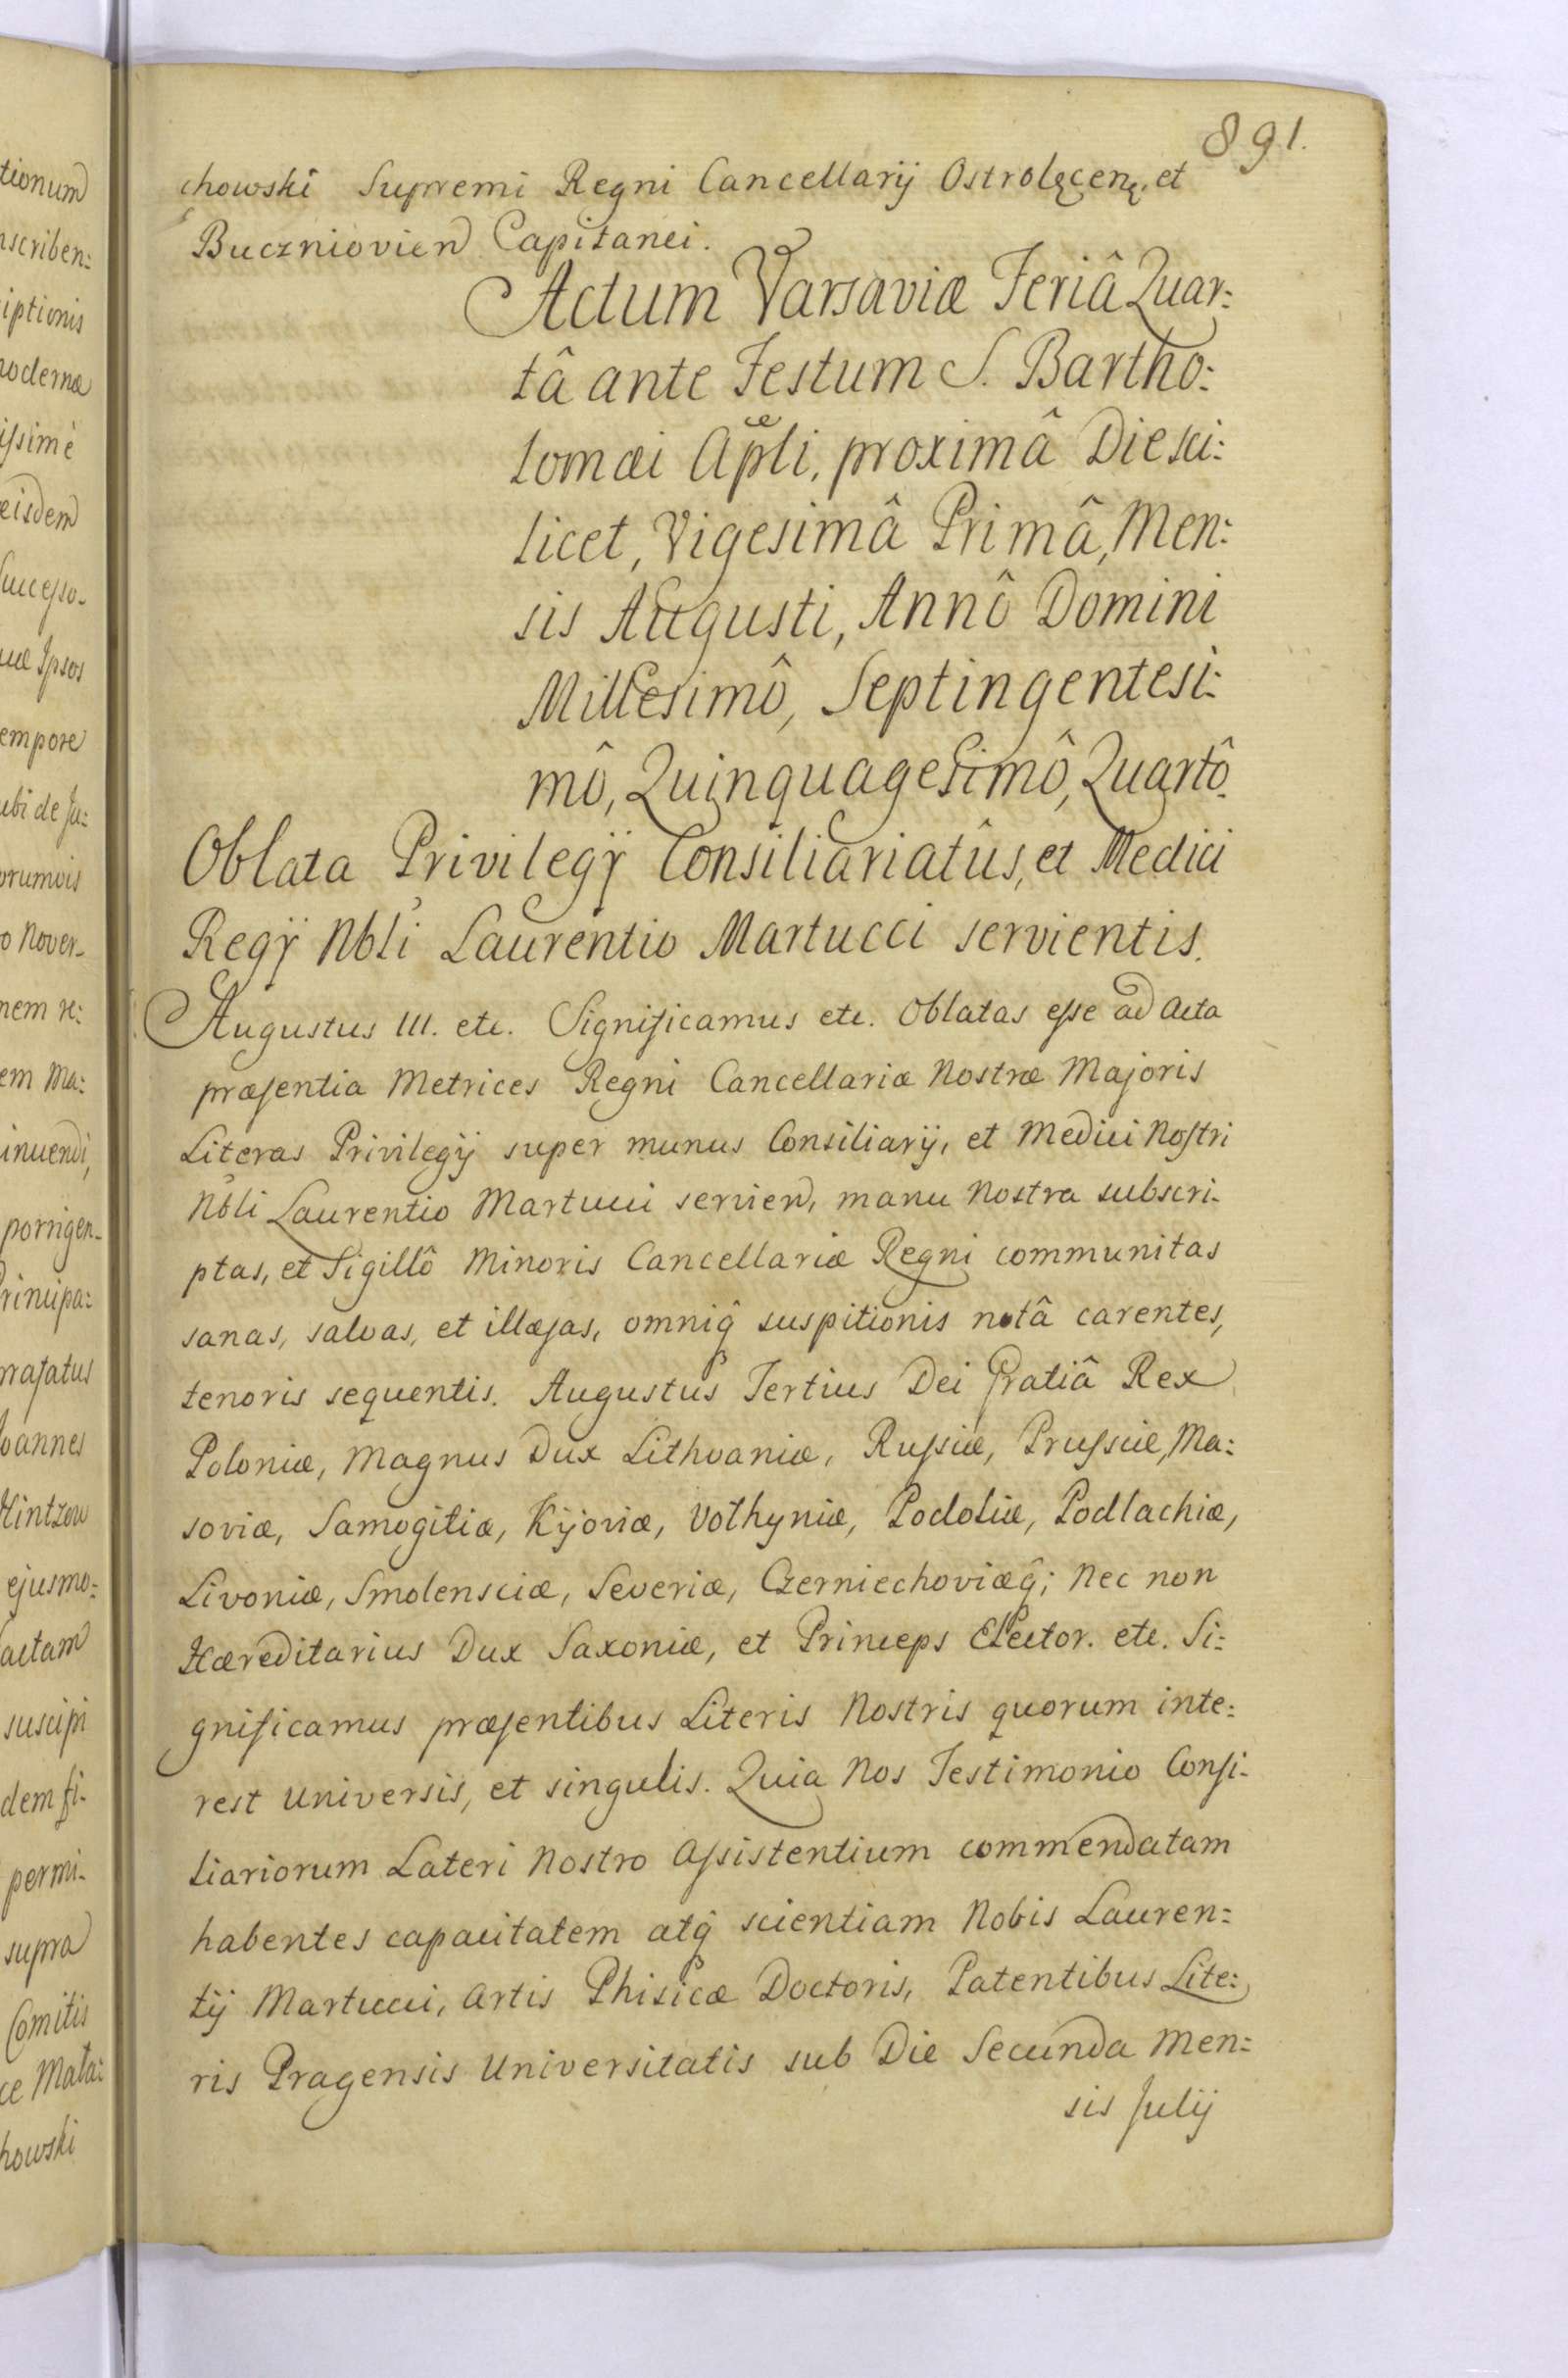 891.
chowski Supremi Regni Cancellarij Ostrolęcenę, et
Buczniovien Capitanei.
Actum Varsaviæ Feriâ Quar:
tâ ante Festum S. Bartho:
lomæi Apli, proximâ Die sci:
licet, Vigesimâ Primâ, Men:
sis Augusti, Annô Domini
Millesimô, Septingentesi:
mô, Quinquagesimô, Quartô.
Oblata Privilegÿ Consiliariatûs, et Medici
Regÿ Nbli Laurentio Martucci servientis.
Augustus III. etc. Significamus etc. Oblatas esse ad Acta
præsentia Metrices Regni Cancellariæ Nostræ Majoris
Literas Privilegij super munus Consiliarij, et Medici Nostri
Nbli Laurentio Martucci servien, manu Nostra subscri-
ptas, et Sigillô Minoris Cancellariæ Regni communitas
sanas, salvas, et illæsas, omniq̂ suspitionis notâ carentes,
tenoris sequentis. Augustus Tertius Dei Gratiâ Rex
Poloniæ, Magnus Dux Lithvaniæ, Russiæ, Prussiæ, Ma:
soviæ, Samogitiæ, Kijoviæ, Volhyniæ, Podoliæ, Podlachiæ,
Livoniæ, Smolensciæ, Severiæ, Czerniechoviæq̂; Nec non
Hæreditarius Dux Saxoniæ, et Princeps Elector. etc. Si:
gnificamus præsentibus Literis Nostris quorum inte:
rest universis, et singulis. Quia Nos Testimonio Consi-
liariorum Lateri Nostro Assistentium commendatam
habentes capacitatem atq̂ scientiam Nobis Lauren:
tij Martucci, Artis Phisicæ Doctoris, Patentibus Lite:
ris Pragensis Universitatis sub Die Secunda Men:
sis Julij